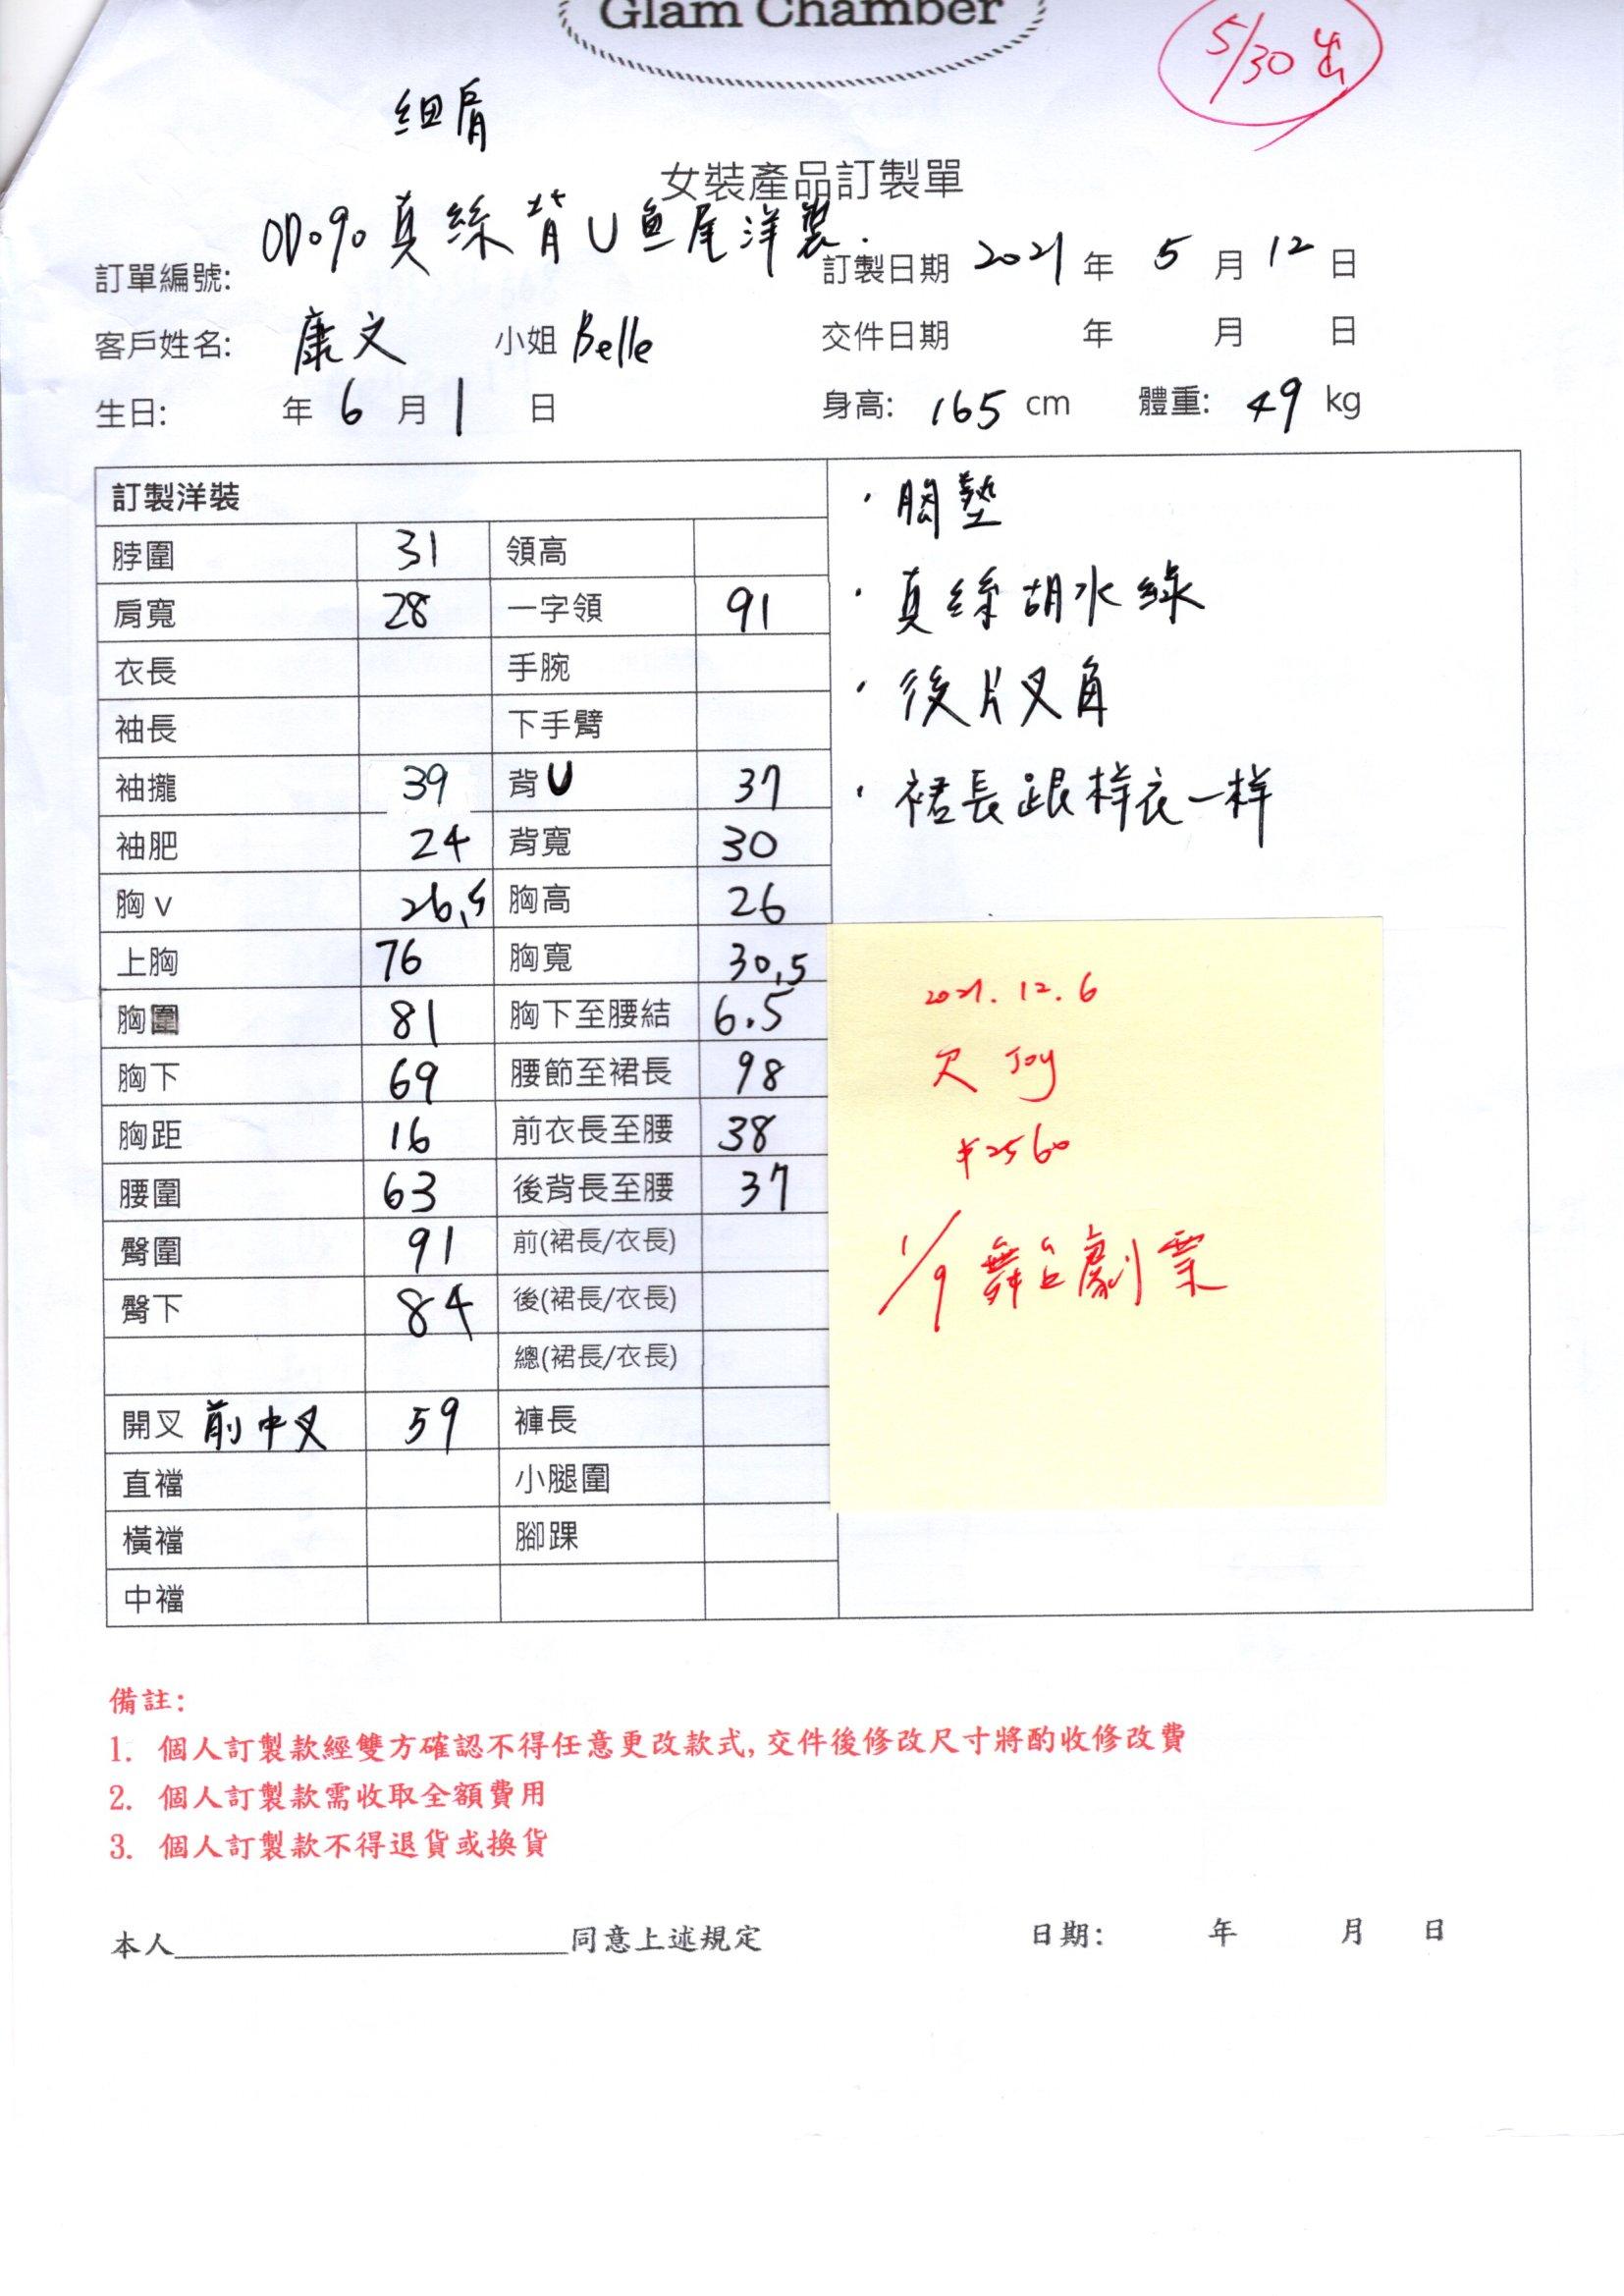 Glam Chamber
5/30 出
細肩
女裝產品訂製單
訂單編號: OD090真絲背U魚尾洋裝. 訂製日期 2021 年 5 月 12 日
客戶姓名: 康文 小姐 Belle 交件日期 年 月 日
生日: 年 6 月 1 日 身高: 165 cm 體重: 49 kg
訂製洋裝
脖圍 31 領高
肩寬 28 一字領 91
衣長 手腕
袖長 下手臂
袖攏 39 背U 37
袖肥 24 背寬 30
胸v 26.5 胸高 26
上胸 76 胸寬 30.5
胸圍 81 胸下至腰結 6.5
胸下 69 腰節至裙長 98
胸距 16 前衣長至腰 38
腰圍 63 後背長至腰 37
臀圍 91 前(裙長/衣長)
臀下 84 後(裙長/衣長)
總(裙長/衣長)
開叉 前中叉 59 褲長
直襠 小腿圍
橫襠 腳踝
中襠
· 胸墊
· 真絲胡水綠
· 後片叉角
· 裙長跟样衣一样
2021.12.6
欠 Joy
¥2560
1/9 舞台劇業
備註:
1. 個人訂製款經雙方確認不得任意更改款式,交件後修改尺寸將酌收修改費
2. 個人訂製款需收取全額費用
3. 個人訂製款不得退貨或換貨
本人____________________同意上述規定 日期: 年 月 日